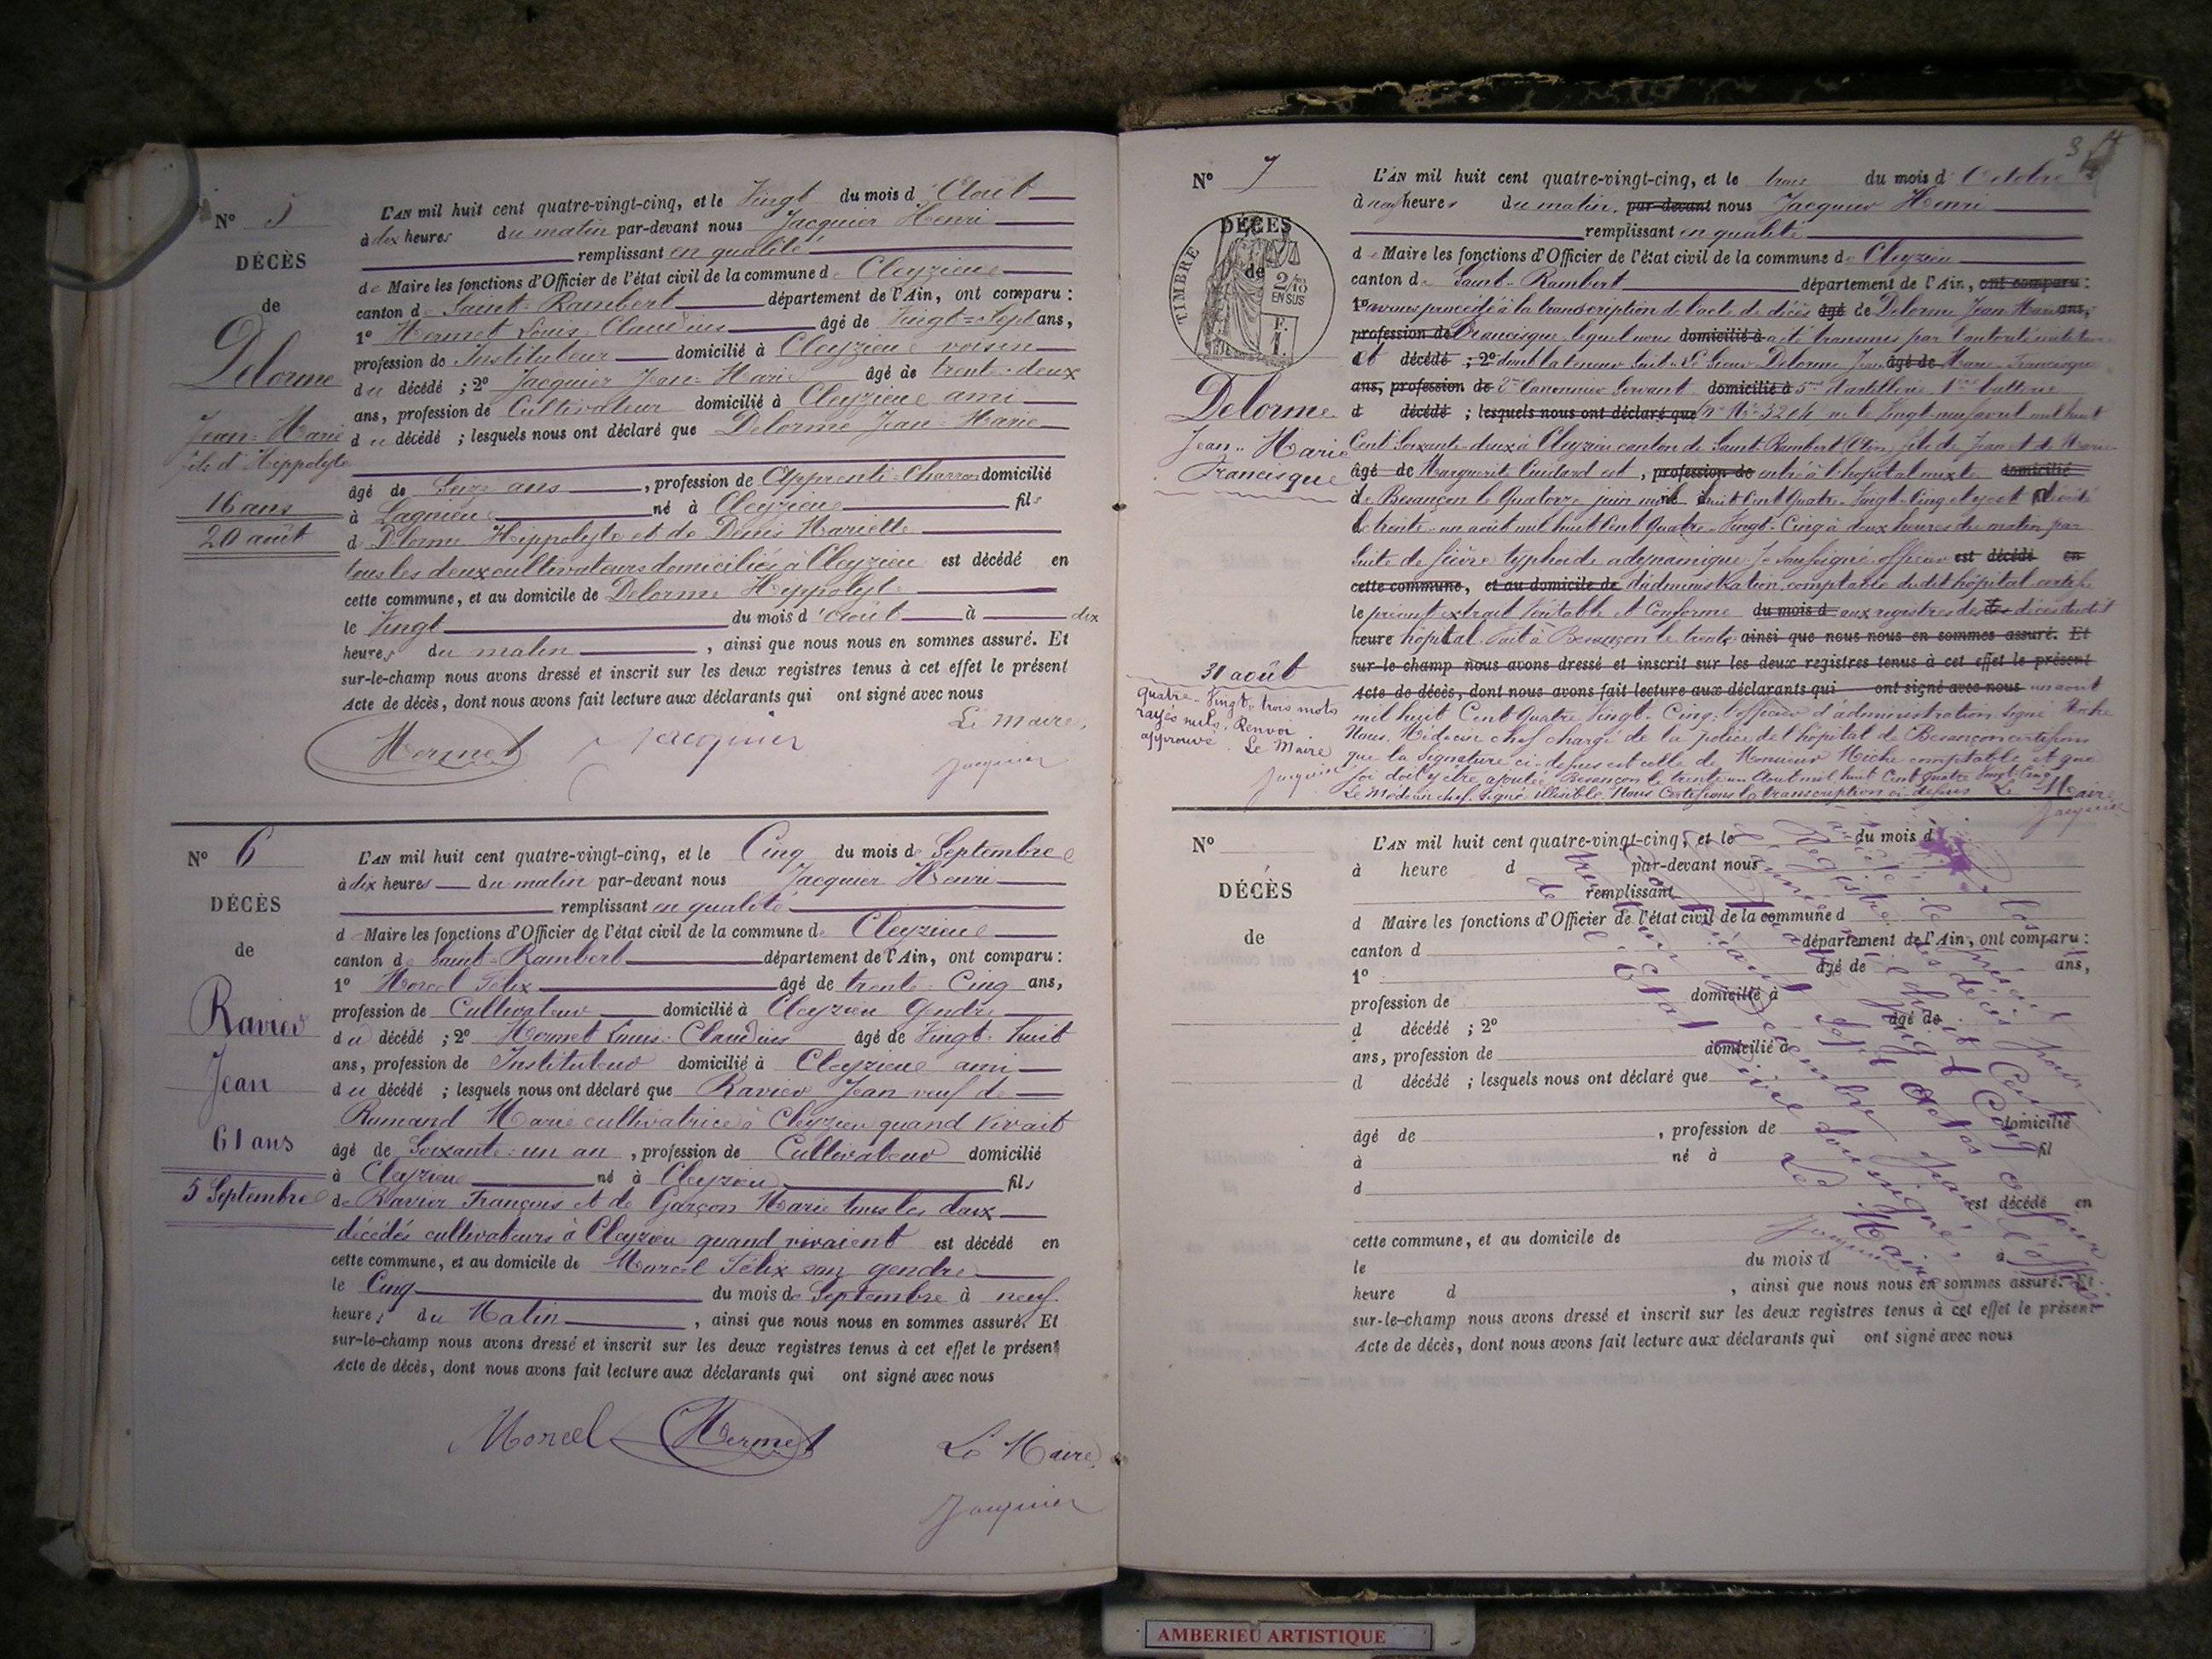 N° 5
DÉCÈS
de
Delorme
Jean-Marie
fils d'Hippolyte
16 ans
20 août
L'AN mil huit cent quatre-vingt-cinq, et le Vingt du mois d'Août
à dix heures du matin par-devant nous Jacquier Henri
remplissant en qualité
de Maire les fonctions d'Officier de l'état civil de la commune de Cleyzieu
canton de Saint-Rambert département de l'Ain, ont comparu :
1° Hermet Louis Claudius âgé de Vingt-Sept ans,
profession de Instituteur domicilié à Cleyzieu voisin
du décédé ; 2° Jacquier Jean-Marie âgé de trente-deux
ans, profession de Cultivateur domicilié à Cleyzieu ami
du décédé ; lesquels nous ont déclaré que Delorme Jean-Marie
âgé de Seize ans, profession de Apprenti-Charron domicilié
à Lagnieu né à Cleyzieu fils
de Delorme Hippolyte et de Denis Mariette
tous les deux cultivateurs domiciliés à Cleyzieu est décédé en
cette commune, et au domicile de Delorme Hippolyte
le Vingt du mois d'Août à dix
heures du matin, ainsi que nous nous en sommes assuré. Et
sur-le-champ nous avons dressé et inscrit sur les deux registres tenus à cet effet le présent
Acte de décès, dont nous avons fait lecture aux déclarants qui ont signé avec nous
Le Maire,
Hermet Jacquier Jacquier
N° 6
DÉCÈS
de
Ravier
Jean
61 ans
5 Septembre
L'AN mil huit cent quatre-vingt-cinq, et le Cinq du mois de Septembre
à dix heures du matin par-devant nous Jacquier Henri
remplissant en qualité
de Maire les fonctions d'Officier de l'état civil de la commune de Cleyzieu
canton de Saint-Rambert département de l'Ain, ont comparu :
1° Morcel Félix âgé de trente-Cinq ans,
profession de Cultivateur domicilié à Cleyzieu Gendre
du décédé ; 2° Hermet Louis Claudius âgé de Vingt-huit
ans, profession de Instituteur domicilié à Cleyzieu ami
du décédé ; lesquels nous ont déclaré que Ravier Jean veuf de
Romand Marie cultivatrice à Cleyzieu quand vivait
âgé de Soixante-un an, profession de Cultivateur domicilié
à Cleyzieu né à Cleyzieu fils
de Ravier François et de Garçon Marie tous les deux
décédés cultivateurs à Cleyzieu quand vivaient est décédé en
cette commune, et au domicile de Morcel Félix son gendre
le Cinq du mois de Septembre à neuf
heures du Matin, ainsi que nous nous en sommes assuré. Et
sur-le-champ nous avons dressé et inscrit sur les deux registres tenus à cet effet le présent
Acte de décès, dont nous avons fait lecture aux déclarants qui ont signé avec nous
Morcel Hermet Le Maire,
Jacquier
N° 7
DÉCÈS
de
TIMBRE
2/10
EN SUS
Delorme
Jean-Marie
Francisque
31 août
Quatre-Vingt-trois mots
rayés nuls. Renvoi
approuvé. Le Maire
Jacquier
L'AN mil huit cent quatre-vingt-cinq, et le trois du mois d'Octobre
à neuf heures du matin, par-devant nous Jacquier Henri
remplissant en qualité
de Maire les fonctions d'Officier de l'état civil de la commune de Cleyzieu
canton de Saint-Rambert département de l'Ain, ont comparu :
1° avons procédé à la transcription de l'acte de décès âgé de Delorme Jean Marie ans,
profession de Francisque lequel nous domicilié à a été transmis par l'autorité militaire
et décédé ; 2° dont la teneur suit. Le Sieur Delorme Jean âgé de Marie Francisque
ans, profession de 2me Canonnier Servant domicilié à 5me d'artillerie 1re batterie
d décédé ; lesquels nous ont déclaré que N° Mle 3204 né le Vingt-neuf avril mil huit
Cent Soixante-deux à Cleyzieu canton de Saint-Rambert (Ain) fils de Jean et de Marie
âgé de Marguerite Cuidard est, profession de entré à l'hôpital mixte domicilié
de Besançon le Quatorze juin mil huit Cent Quatre-Vingt-Cinq et y est décédé
le trente-un août mil huit Cent Quatre-Vingt-Cinq à deux heures du matin par
Suite de fièvre typhoïde adynamique. Je soussigné officier est décédé en
cette commune, et au domicile de d'administration comptable dudit hôpital certifie
le présent extrait Véritable et Conforme du mois d aux registres des décès dudit
heure hôpital. Fait à Besançon le trente ainsi que nous nous en sommes assuré. Et
sur-le-champ nous avons dressé et inscrit sur les deux registres tenus à cet effet le présent
Acte de décès, dont nous avons fait lecture aux déclarants qui ont signé avec nous un août
mil huit Cent Quatre Vingt-Cinq : l'officier d'administration Signé Miche
Nous Médecin chef chargé de la police de l'hôpital de Besançon certifions
que la Signature ci-dessus est celle de Monsieur Miche comptable et que
foi doit y être ajoutée. Besançon le trente un Août mil huit Cent Quatre Vingt-Cinq
Le Médecin chef. Signé illisible. Nous Certifions la transcription ci-dessus Le Maire
Jacquier
N°
DÉCÈS
de
L'AN mil huit cent quatre-vingt-cinq, et le du mois d
à heure d par-devant nous
remplissant
d Maire les fonctions d'Officier de l'état civil de la commune d
canton d département de l'Ain, ont comparu :
1° âgé de ans,
profession de domicilié à
d décédé ; 2° âgé de
ans, profession de domicilié à
d décédé ; lesquels nous ont déclaré que
âgé de , profession de domicilié
à né à fil
d
est décédé en
cette commune, et au domicile de
le du mois d à
heure d , ainsi que nous nous en sommes assuré. Et
sur-le-champ nous avons dressé et inscrit sur les deux registres tenus à cet effet le présent
Acte de décès, dont nous avons fait lecture aux déclarants qui ont signé avec nous
le présent
Registre des décès pour
l'année mil huit Cent
Décembre par l'officier
de l'Etat Civil soussigné.
Le Maire
Jacquier
AMBERIEU ARTISTIQUE